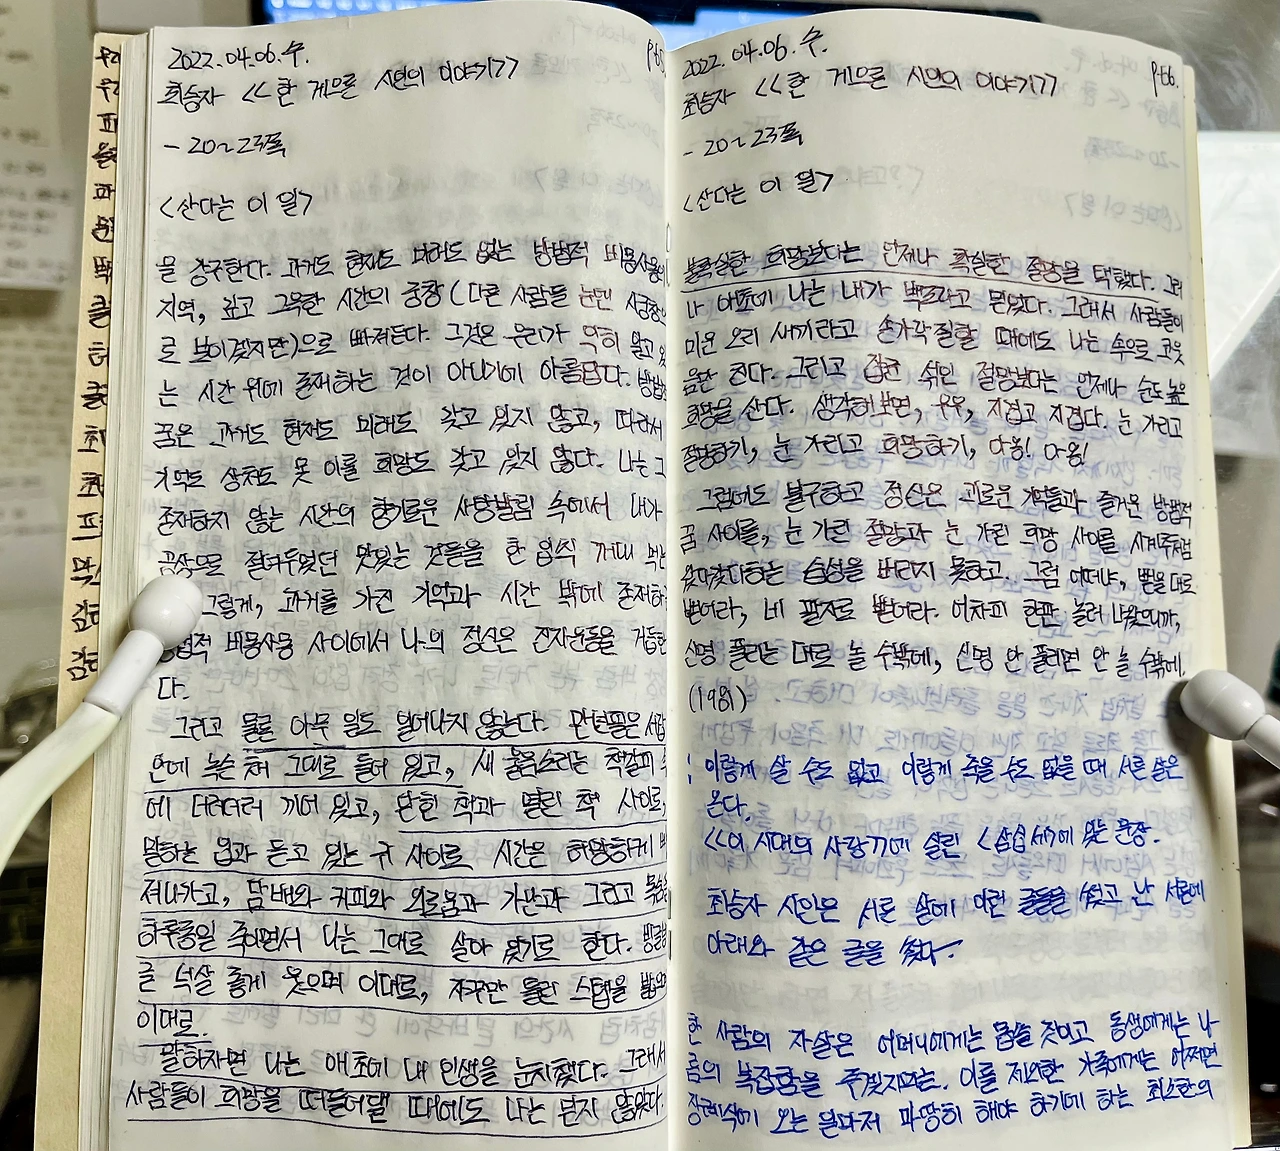 2022.04.06.수.
최승자 <<한 게으른 시인의 이야기>>
- 20~23쪽
<산다는 이 일>
을 강구한다. 과거도 현재도 미래도 없는 방법적 비몽사몽의
지역, 깊고 그윽한 시간의 중창(다른 사람들 눈엔
로 보이겠지만)으로 빠져든다. 그것은 우리가 익히 알고 있
는 시간 위에 존재하는 것이 아니기에 아름답다. 방법적
꿈은 과거도 현재도 미래도 갖고 있지 않고, 따라서
기억도 상처도 못 이룰 희망도 갖고 있지 않다. 나는 그
존재하지 않는 시간의 향기로운 사탕발림 속에서 내가
공상으로 절여두었던 맛있는 것들을 한 움식 꺼내 먹는
그렇게, 과거를 가진 기억과 시간 밖에 존재하
법적 비몽사몽 사이에서 나의 정신은 진자운동을 거듭한
다.
그리고 물론 아무 일도 일어나지 않는다. 만년필은 서랍
안에 녹슨 채 그대로 들어 있고, 새 울음소리는 책갈피 속
에 더러더러 끼어 있고, 닫힌 책과 열린 책 사이로,
말하는 입과 듣고 있는 귀 사이로 시간은 허망하게 빠
져나가고, 담배와 커피와 외로움과 가난과 그리고 목숨을
하루종일 죽이면서 나는 그대로 살아 있기로 한다. 빙글빙
글 넉살 좋게 웃으며 이대로, 자꾸만 틀린 스텝을 밟으며
이대로.
말하자면 나는 애초에 내 인생을 눈치챘다. 그래서
사람들이 희망을 떠들어댈 때에도 나는 믿지 않았다.
2022.04.06.수.
P.66.
최승자 <<한 게으른 시인의 이야기>>
- 20~23쪽
<산다는 이 일>
불확실한 희망보다는 언제나 확실한 절망을 택했다. 그러
나 애초에 나는 내가 백조라고 믿었다. 그래서 사람들이
미운 오리 새끼라고 손가락질할 때에도 나는 속으로 코웃
음만 친다. 그리고 잡견 섞인 절망보다는 언제나 순도 높은
희망을 산다. 생각해보면, 우우, 지겹고 지겹다. 눈 가리고
절망하기, 눈 가리고 희망하기, 아옹! 아옹!
그럼에도 불구하고 정신은 괴로운 기억들과 즐거운 방법적
꿈 사이를, 눈 가린 절망과 눈 가린 희망 사이를 시계추처럼
왔다갔다하는 습성을 버리지 못하고. 그럼 어떠냐, 뻗을 대로
뻗어라, 네 팔자로 뻗어라. 어차피 한판 놀러 나왔으니까,
신명 풀리는 대로 놀 수밖에, 신명 안 풀리면 안 놀 수밖에.
(1981)
; 이렇게 살 수도 없고 이렇게 죽을 수도 없을 때 서른 살은
온다.
<<이 시대의 사랑>>에 실린 <삼십세>에 있는 문장.
최승자 시인은 서른 살에 이런 글들을 썼고 난 서른에
아래와 같은 글을 썼다-
한 사람의 자살은 어머니에게는 몹쓸 짓이고 동생에게는 나
름의 복잡함을 주겠지마는. 이를 제외한 가족에게는 어쩌면
장례식에 오는 일마저 마땅히 해야 하기에 하는 최소한의